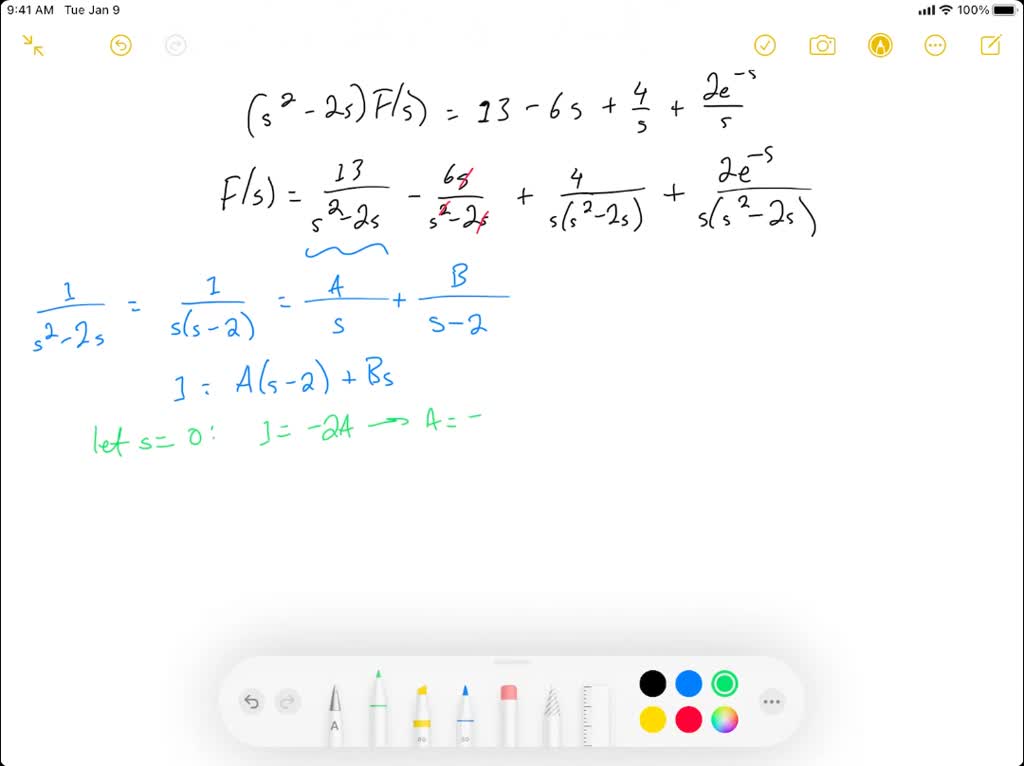 9:41 AM Tue Jan 9 100%
(s² - 2s) F(s) = 13 - 6s + 4/s + 2e^-s/s
F(s) = 13/(s² - 2s) - 6s/(s² - 2s) + 4/(s(s² - 2s)) + 2e^-s/(s(s² - 2s))
1/(s² - 2s) = 1/(s(s - 2)) = A/s + B/(s - 2)
1 = A(s - 2) + Bs
let s = 0: 1 = -2A → A = -
A 80 50